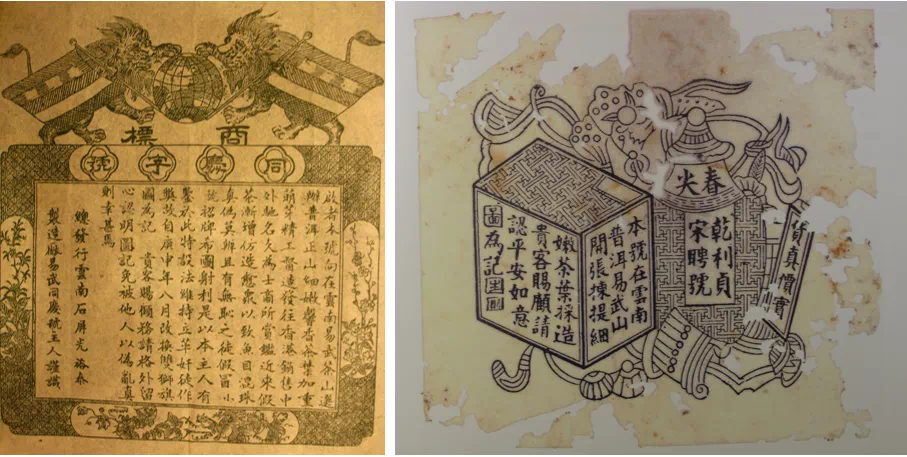 商標
同慶字號
啟者本號向在雲南易武茶山選
辦普洱正山細嫩馨香茶葉加重
萌芽精工督造發往香港銷售中
外馳名久為士商所賞鑑近來假
茶漸增仿造愈眾以致魚目混珠
真偽莫辨且有無恥之徒假冒小
號招牌希圖射利是以本主人有
鑒於此特設法維持立革奸徒作
弊茲自庚申年八月改換雙獅旗
圖為記 貴客賜顧務請格外留
心認明圖記免被他人以偽亂真
則幸甚焉
總發行雲南石屏光裕泰
製造廠易武同慶號主人謹識
春尖
乾利貞
宋聘號
貨真價實
本號在雲南
普洱易武山
開張揀提細
嫩茶葉採造
貴客賜顧請
認平安如意
圖為記